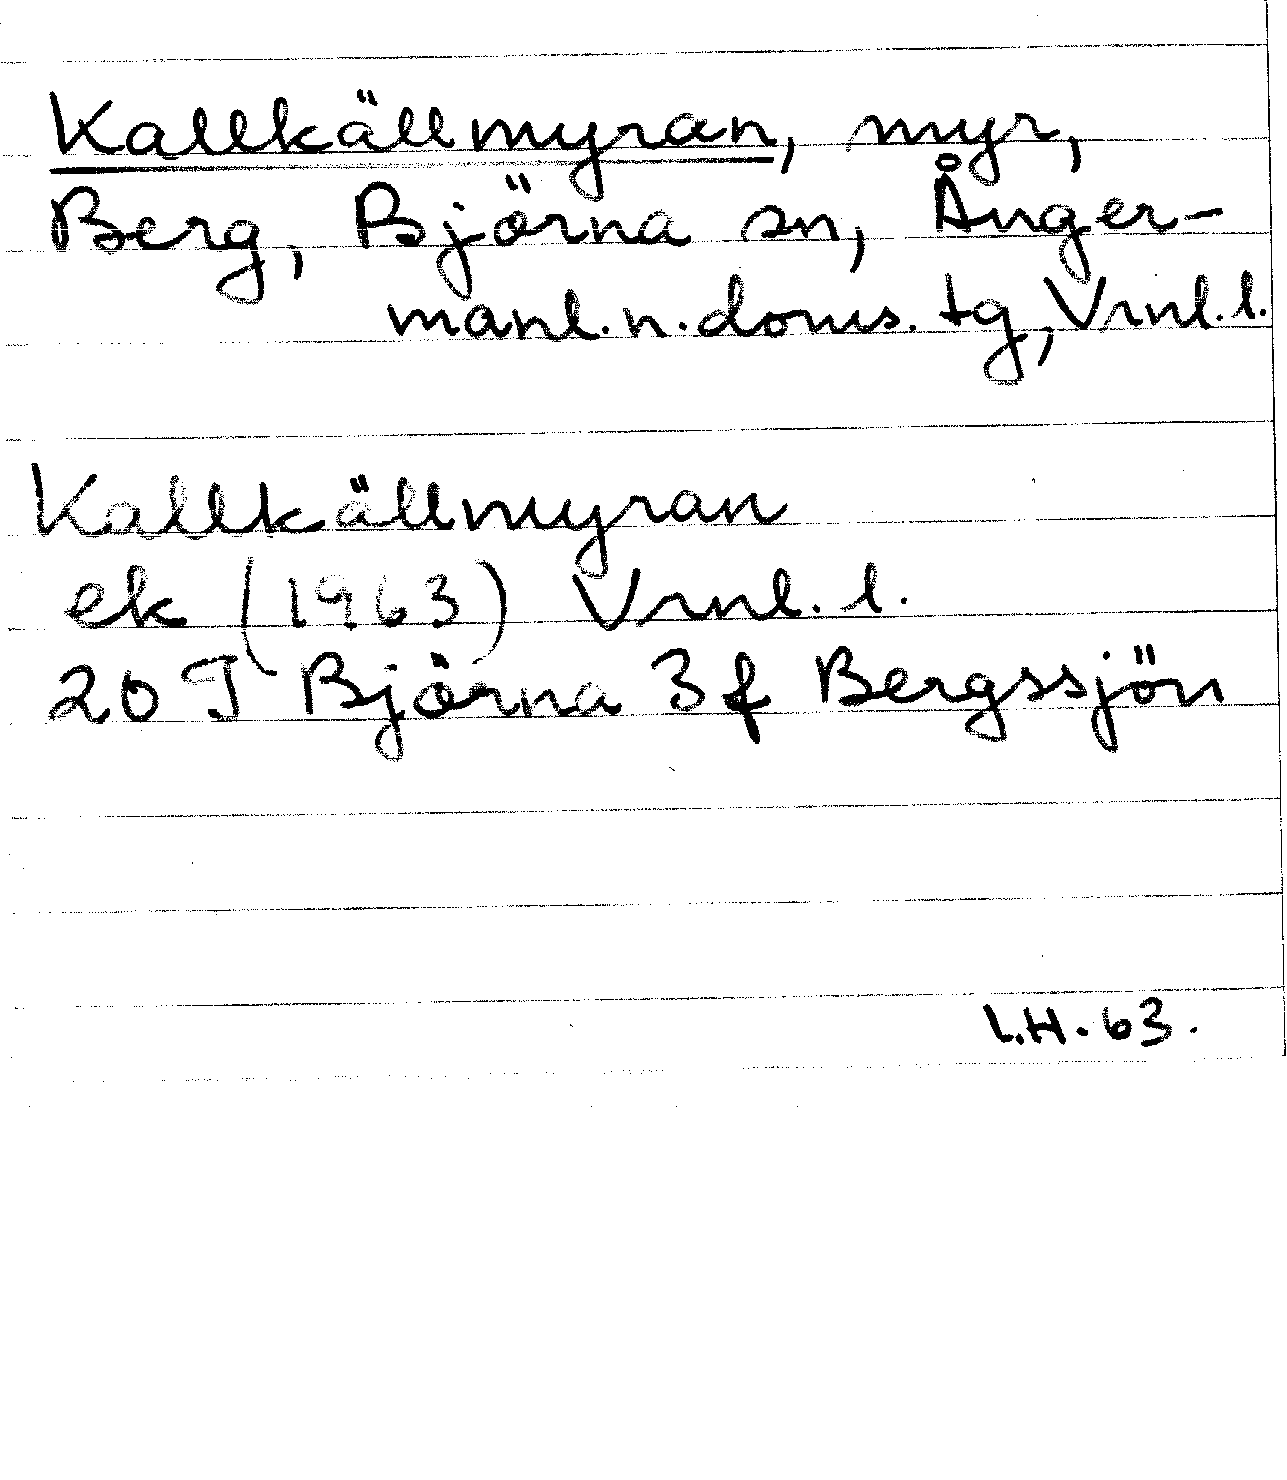 Kallkällmyran, myr,
Berg, Björna sn, Ånger-
manl. n. doms. tg, Vrnl. l.
Kallkällmyran
ek (1963) Vrnl. l.
20 J Björna 3 f Bergssjön
L.H. 63.